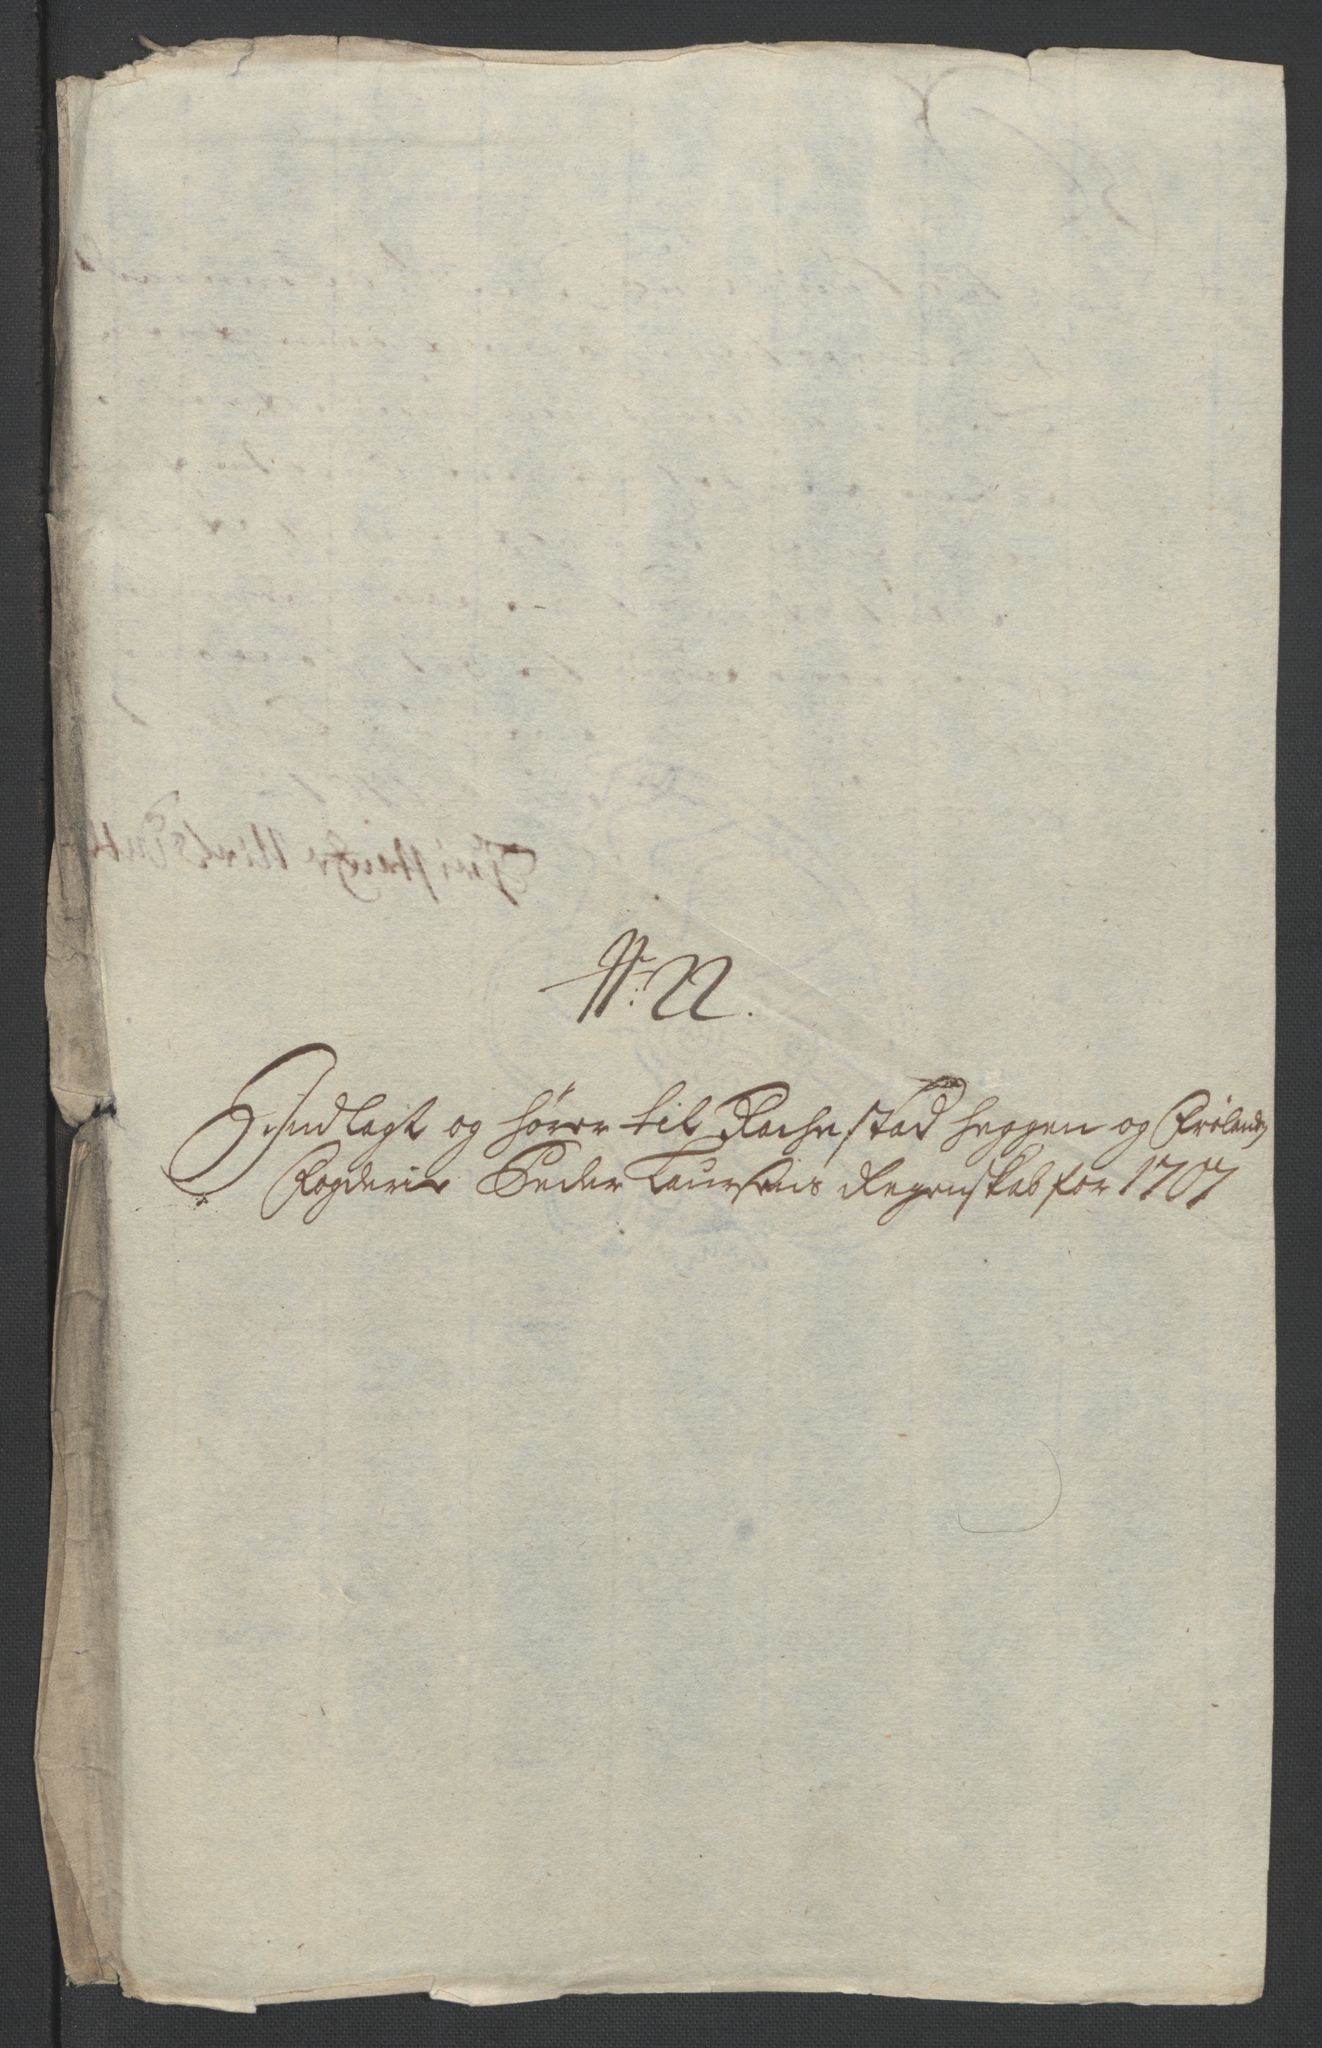 No: 22.
Indlagt og hører til Rachestad Heggen og Frølands
Fogderie Peder Laursens Regenskab for 1707